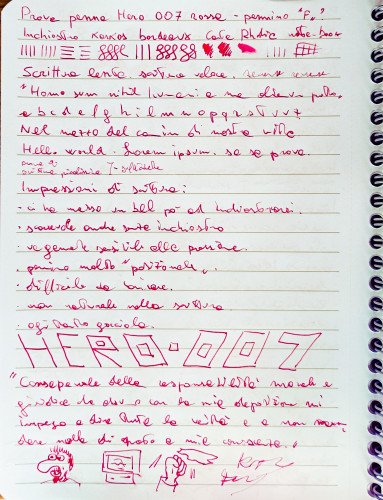 Prova penna Hero 007 rossa - pennino "F"?
Inchiostro Kaweco bordeaux. Carta Rhodia
Scrittura lenta, scrittura veloce,
"Homo sum nihil humani a me alienum puto
a b c d e f g h i l m n o p q r s t u v z
Nel mezzo del camin di nostra vita
Hello world. Lorem ipsum. sa sa prova
Impressioni di scrittura:
- ci ha messo un bel po' ad
- scrivendo anche
- vagamente sensibile alla pressione.
- pennino molto "posizionale".
- difficile da
- non naturale nella scrittura
- ogni tanto gocciola.
HERO-007
"Consapevole della responsabilità morale e
giuridica che assumo con la mia deposizione mi
impegno a dire tutta la verità e a non nascon-
dere nulla di quanto a mia conoscenza."